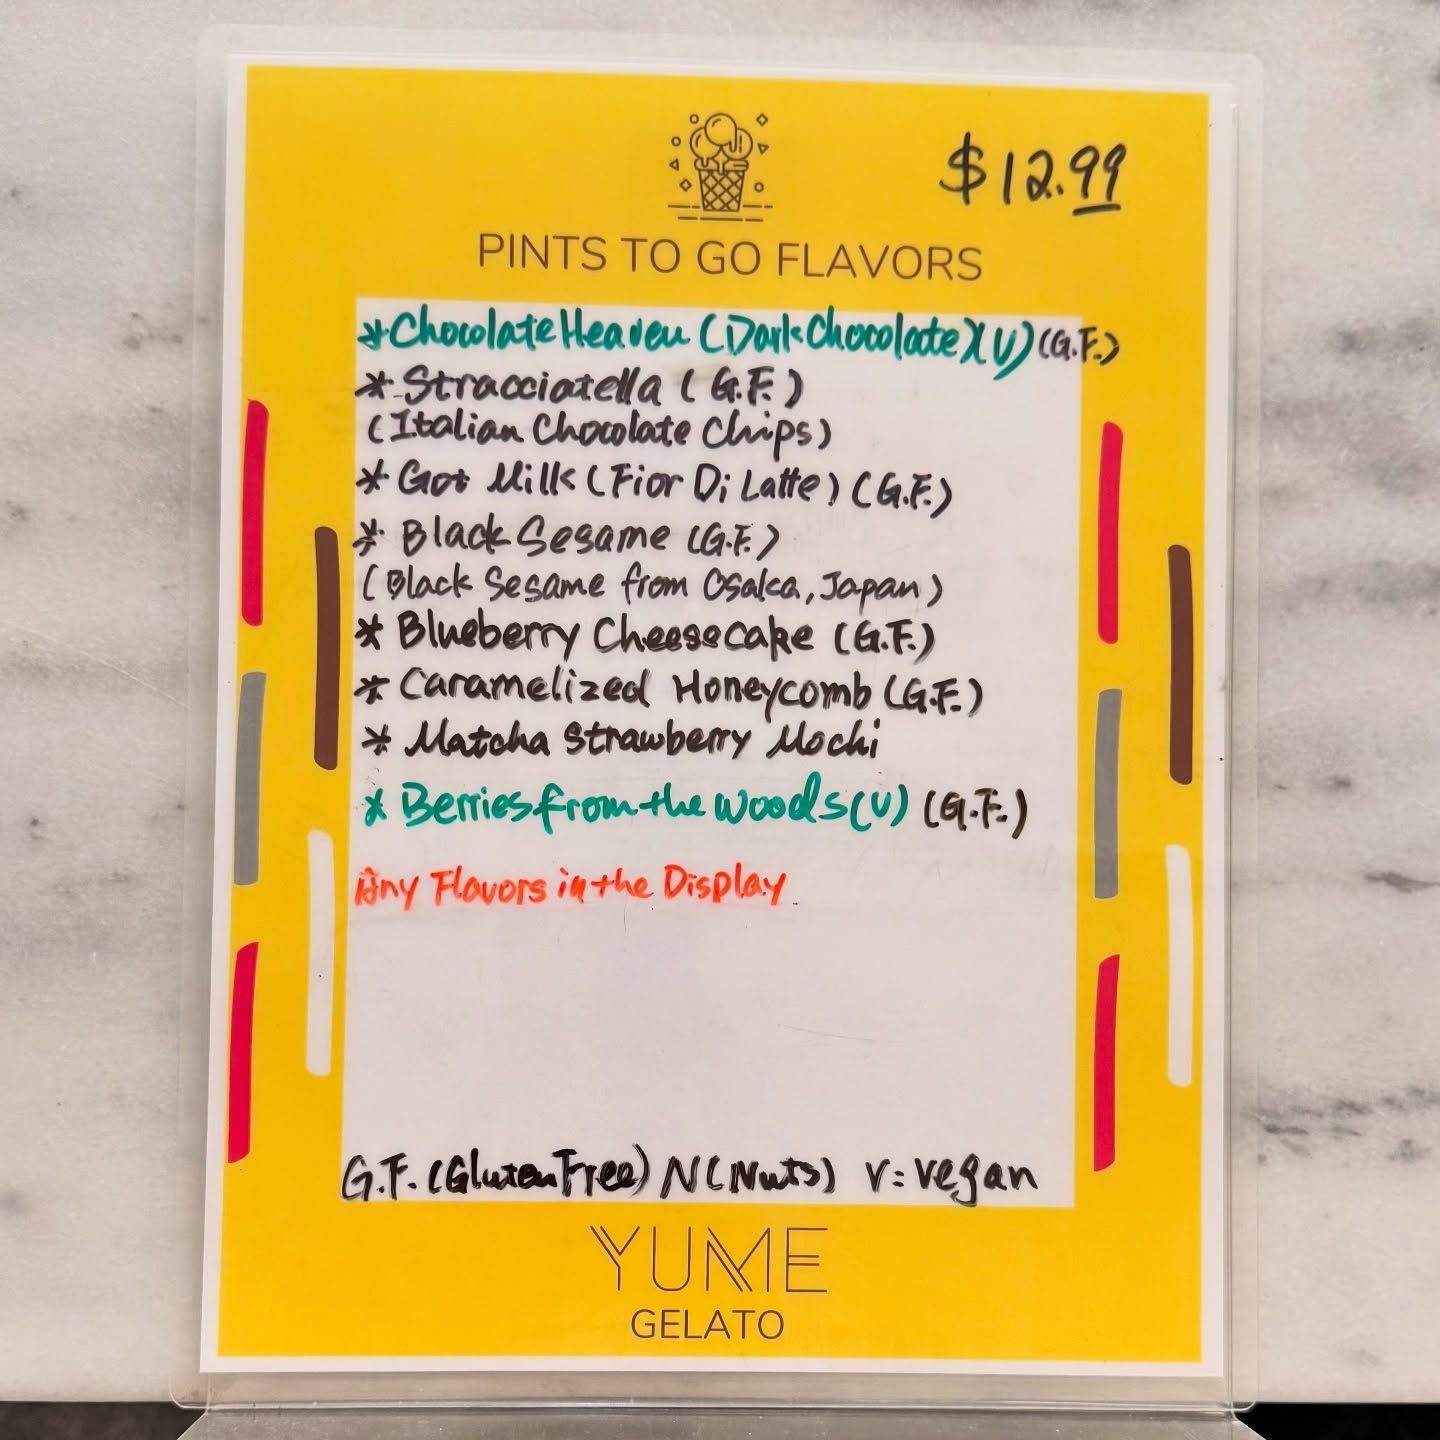 $12.99
PINTS TO GO FLAVORS
*Chocolate Heaven (Dark Chocolate)(V) (G.F.)
* Stracciatella (G.F.)
(Italian Chocolate Chips)
* Got Milk (Fior Di Latte) (G.F.)
* Black Sesame (G.F.)
(Black Sesame from Osaka, Japan)
* Blueberry Cheesecake (G.F.)
* Caramelized Honeycomb (G.F.)
* Matcha Strawberry Mochi
* Berries from the woods (V) (G.F.)
Any Flavors in the Display
G.F. (Gluten Free) N (Nuts) V = vegan
YUME
GELATO